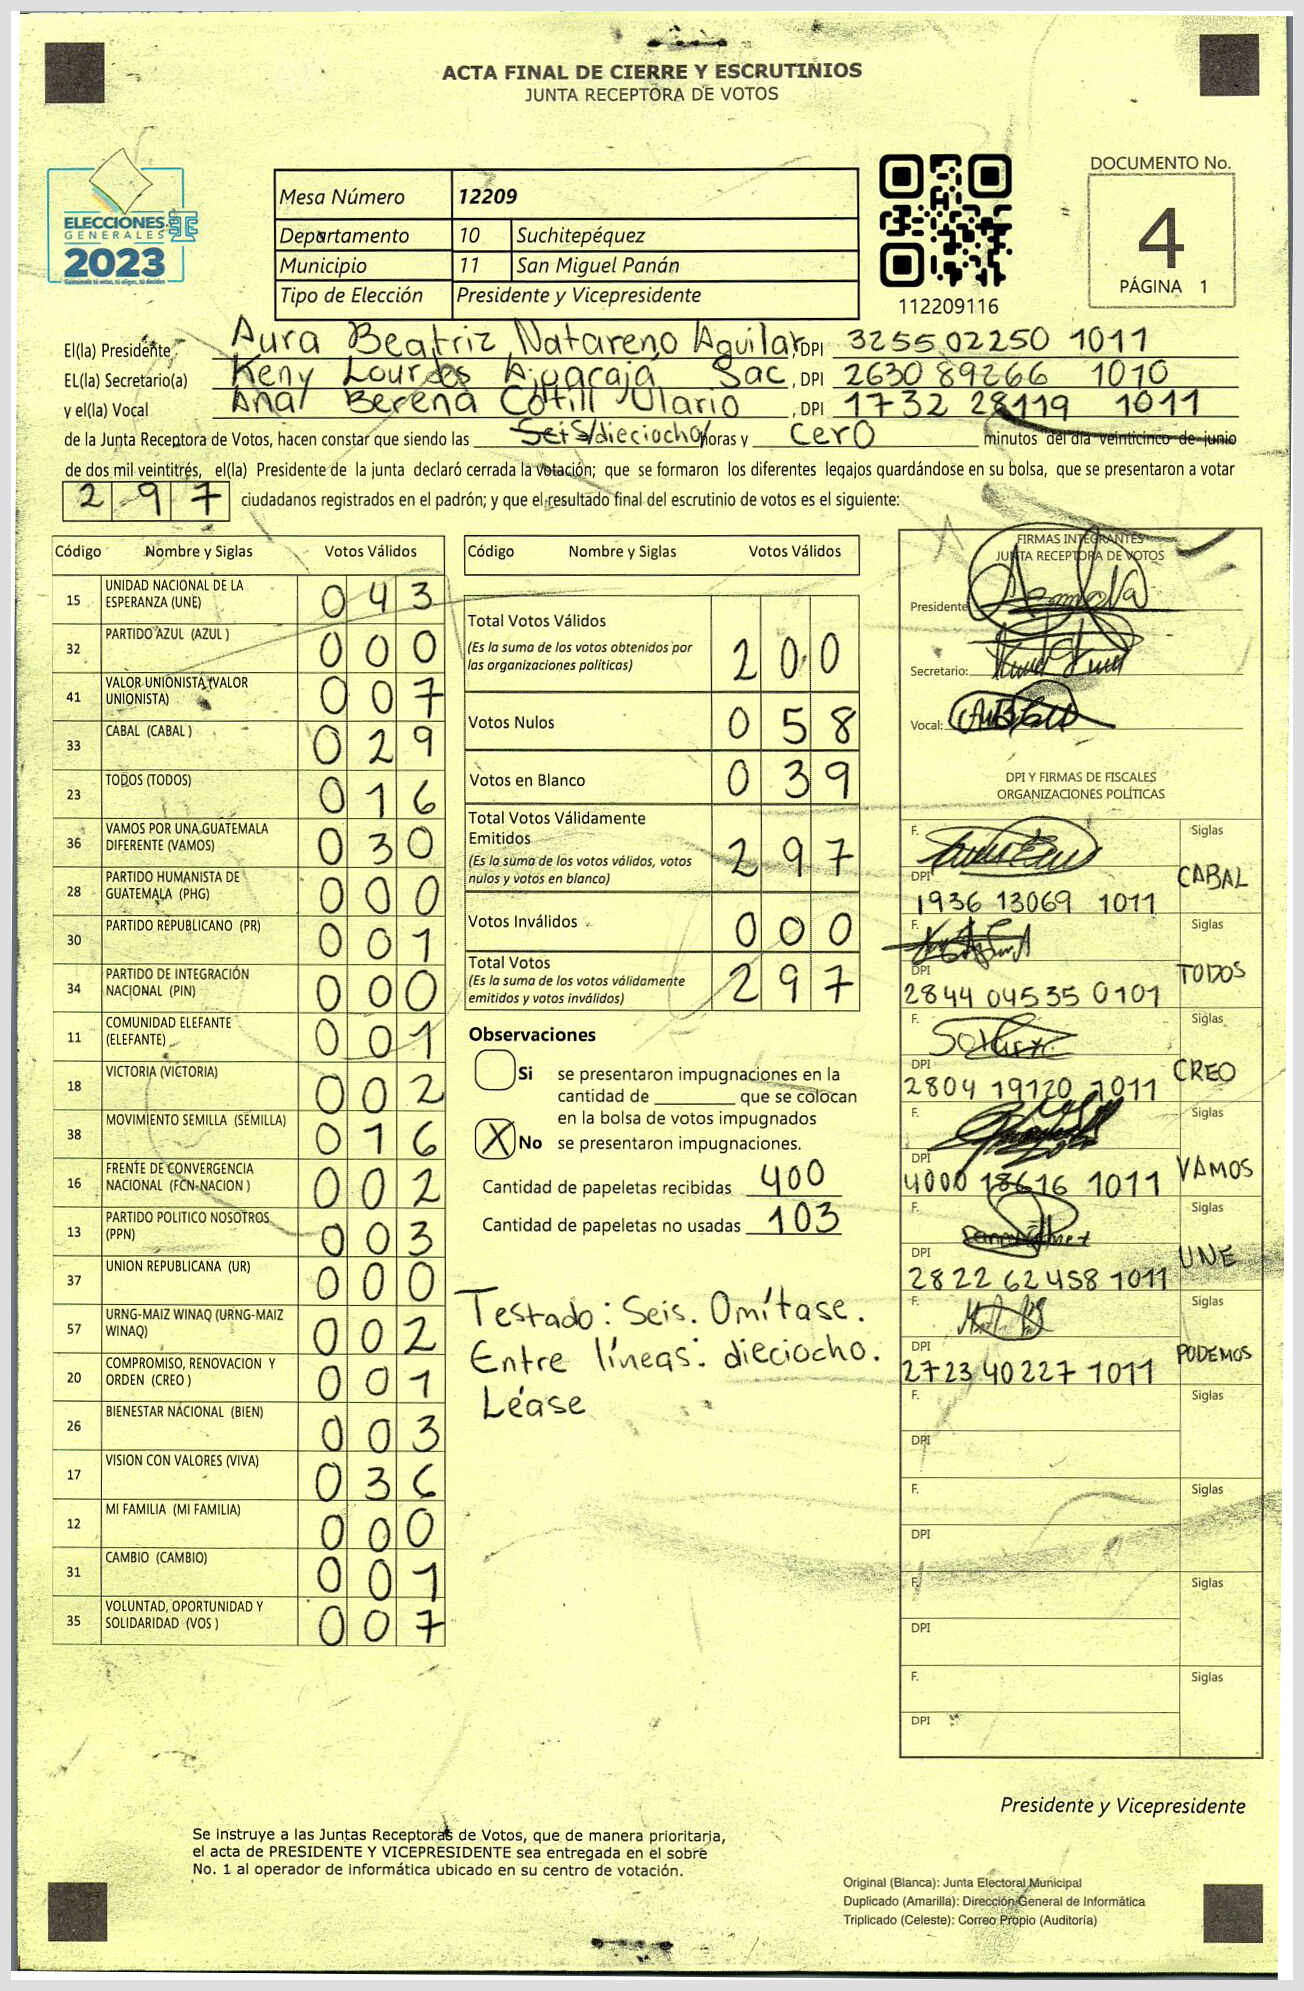 ACTA FINAL DE CIERRE Y ESCRUTINIOS
JUNTA RECEPTORA DE VOTOS
ELECCIONES
GENERALES
2023
Mesa Número 12209
Departamento 10 Suchitepéquez
Municipio 11 San Miguel Panán
Tipo de Elección Presidente y Vicepresidente
112209116
DOCUMENTO No.
4
PÁGINA 1
El(la) Presidente Aura Beatriz Natareno Aguilar, DPI 3255 02250 1011
EL(la) Secretario(a) Keny Lourdes Sac, DPI 2630 89266 1010
y el(la) Vocal Ana Berena, DPI 1732 28119 1011
de la Junta Receptora de Votos, hacen constar que siendo las Seis/dieciocho/ horas y cero minutos del día veinticinco de junio
de dos mil veintitrés, el(la) Presidente de la junta declaró cerrada la votación; que se formaron los diferentes legajos guardándose en su bolsa, que se presentaron a votar
297 ciudadanos registrados en el padrón; y que el resultado final del escrutinio de votos es el siguiente:
Código Nombre y Siglas Votos Válidos
15 UNIDAD NACIONAL DE LA ESPERANZA (UNE) 043
32 PARTIDO AZUL (AZUL ) 000
41 VALOR UNIONISTA (VALOR UNIONISTA) 007
33 CABAL (CABAL ) 029
23 TODOS (TODOS) 016
36 VAMOS POR UNA GUATEMALA DIFERENTE (VAMOS) 030
28 PARTIDO HUMANISTA DE GUATEMALA (PHG) 000
30 PARTIDO REPUBLICANO (PR) 001
34 PARTIDO DE INTEGRACIÓN NACIONAL (PIN) 000
11 COMUNIDAD ELEFANTE (ELEFANTE) 001
18 VICTORIA (VICTORIA) 002
38 MOVIMIENTO SEMILLA (SEMILLA) 016
16 FRENTE DE CONVERGENCIA NACIONAL (FCN-NACION ) 002
13 PARTIDO POLITICO NOSOTROS (PPN) 003
37 UNION REPUBLICANA (UR) 000
57 URNG-MAIZ WINAQ (URNG-MAIZ WINAQ) 002
20 COMPROMISO, RENOVACION Y ORDEN (CREO ) 001
26 BIENESTAR NACIONAL (BIEN) 003
17 VISION CON VALORES (VIVA) 036
12 MI FAMILIA (MI FAMILIA) 000
31 CAMBIO (CAMBIO) 001
35 VOLUNTAD, OPORTUNIDAD Y SOLIDARIDAD (VOS ) 007
Código Nombre y Siglas Votos Válidos
Total Votos Válidos 200
(Es la suma de los votos obtenidos por
las organizaciones políticas)
Votos Nulos 058
Votos en Blanco 039
Total Votos Válidamente
Emitidos 297
(Es la suma de los votos válidos, votos
nulos y votos en blanco)
Votos Inválidos 000
Total Votos 297
(Es la suma de los votos válidamente
emitidos y votos inválidos)
Observaciones
Si se presentaron impugnaciones en la
cantidad de ________ que se colocan
en la bolsa de votos impugnados
X No se presentaron impugnaciones.
Cantidad de papeletas recibidas 400
Cantidad de papeletas no usadas 103
Testado: Seis. Omítase.
Entre líneas: dieciocho.
Léase
FIRMAS INTEGRANTES
JUNTA RECEPTORA DE VOTOS
Presidente
Secretario:
Vocal:
DPI Y FIRMAS DE FISCALES
ORGANIZACIONES POLÍTICAS
F. Siglas
DPI 1936 13069 1011 CABAL
F. Siglas
DPI 2844 04535 0101 TODOS
F. Siglas
DPI 2804 19120 1011 CREO
F. Siglas
DPI 4000 18616 1011 VAMOS
F. Siglas
DPI 2822 62458 1011 UNE
F. Siglas
DPI 2723 40227 1011 PODEMOS
F. Siglas
DPI
F. Siglas
DPI
F. Siglas
DPI
F. Siglas
DPI
Presidente y Vicepresidente
Se instruye a las Juntas Receptoras de Votos, que de manera prioritaria,
el acta de PRESIDENTE Y VICEPRESIDENTE sea entregada en el sobre
No. 1 al operador de informática ubicado en su centro de votación.
Original (Blanca): Junta Electoral Municipal
Duplicado (Amarilla): Dirección General de Informática
Triplicado (Celeste): Correo Propio (Auditoría)